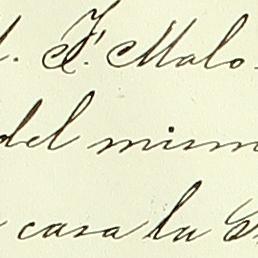 F. Malo
del mism
casa la